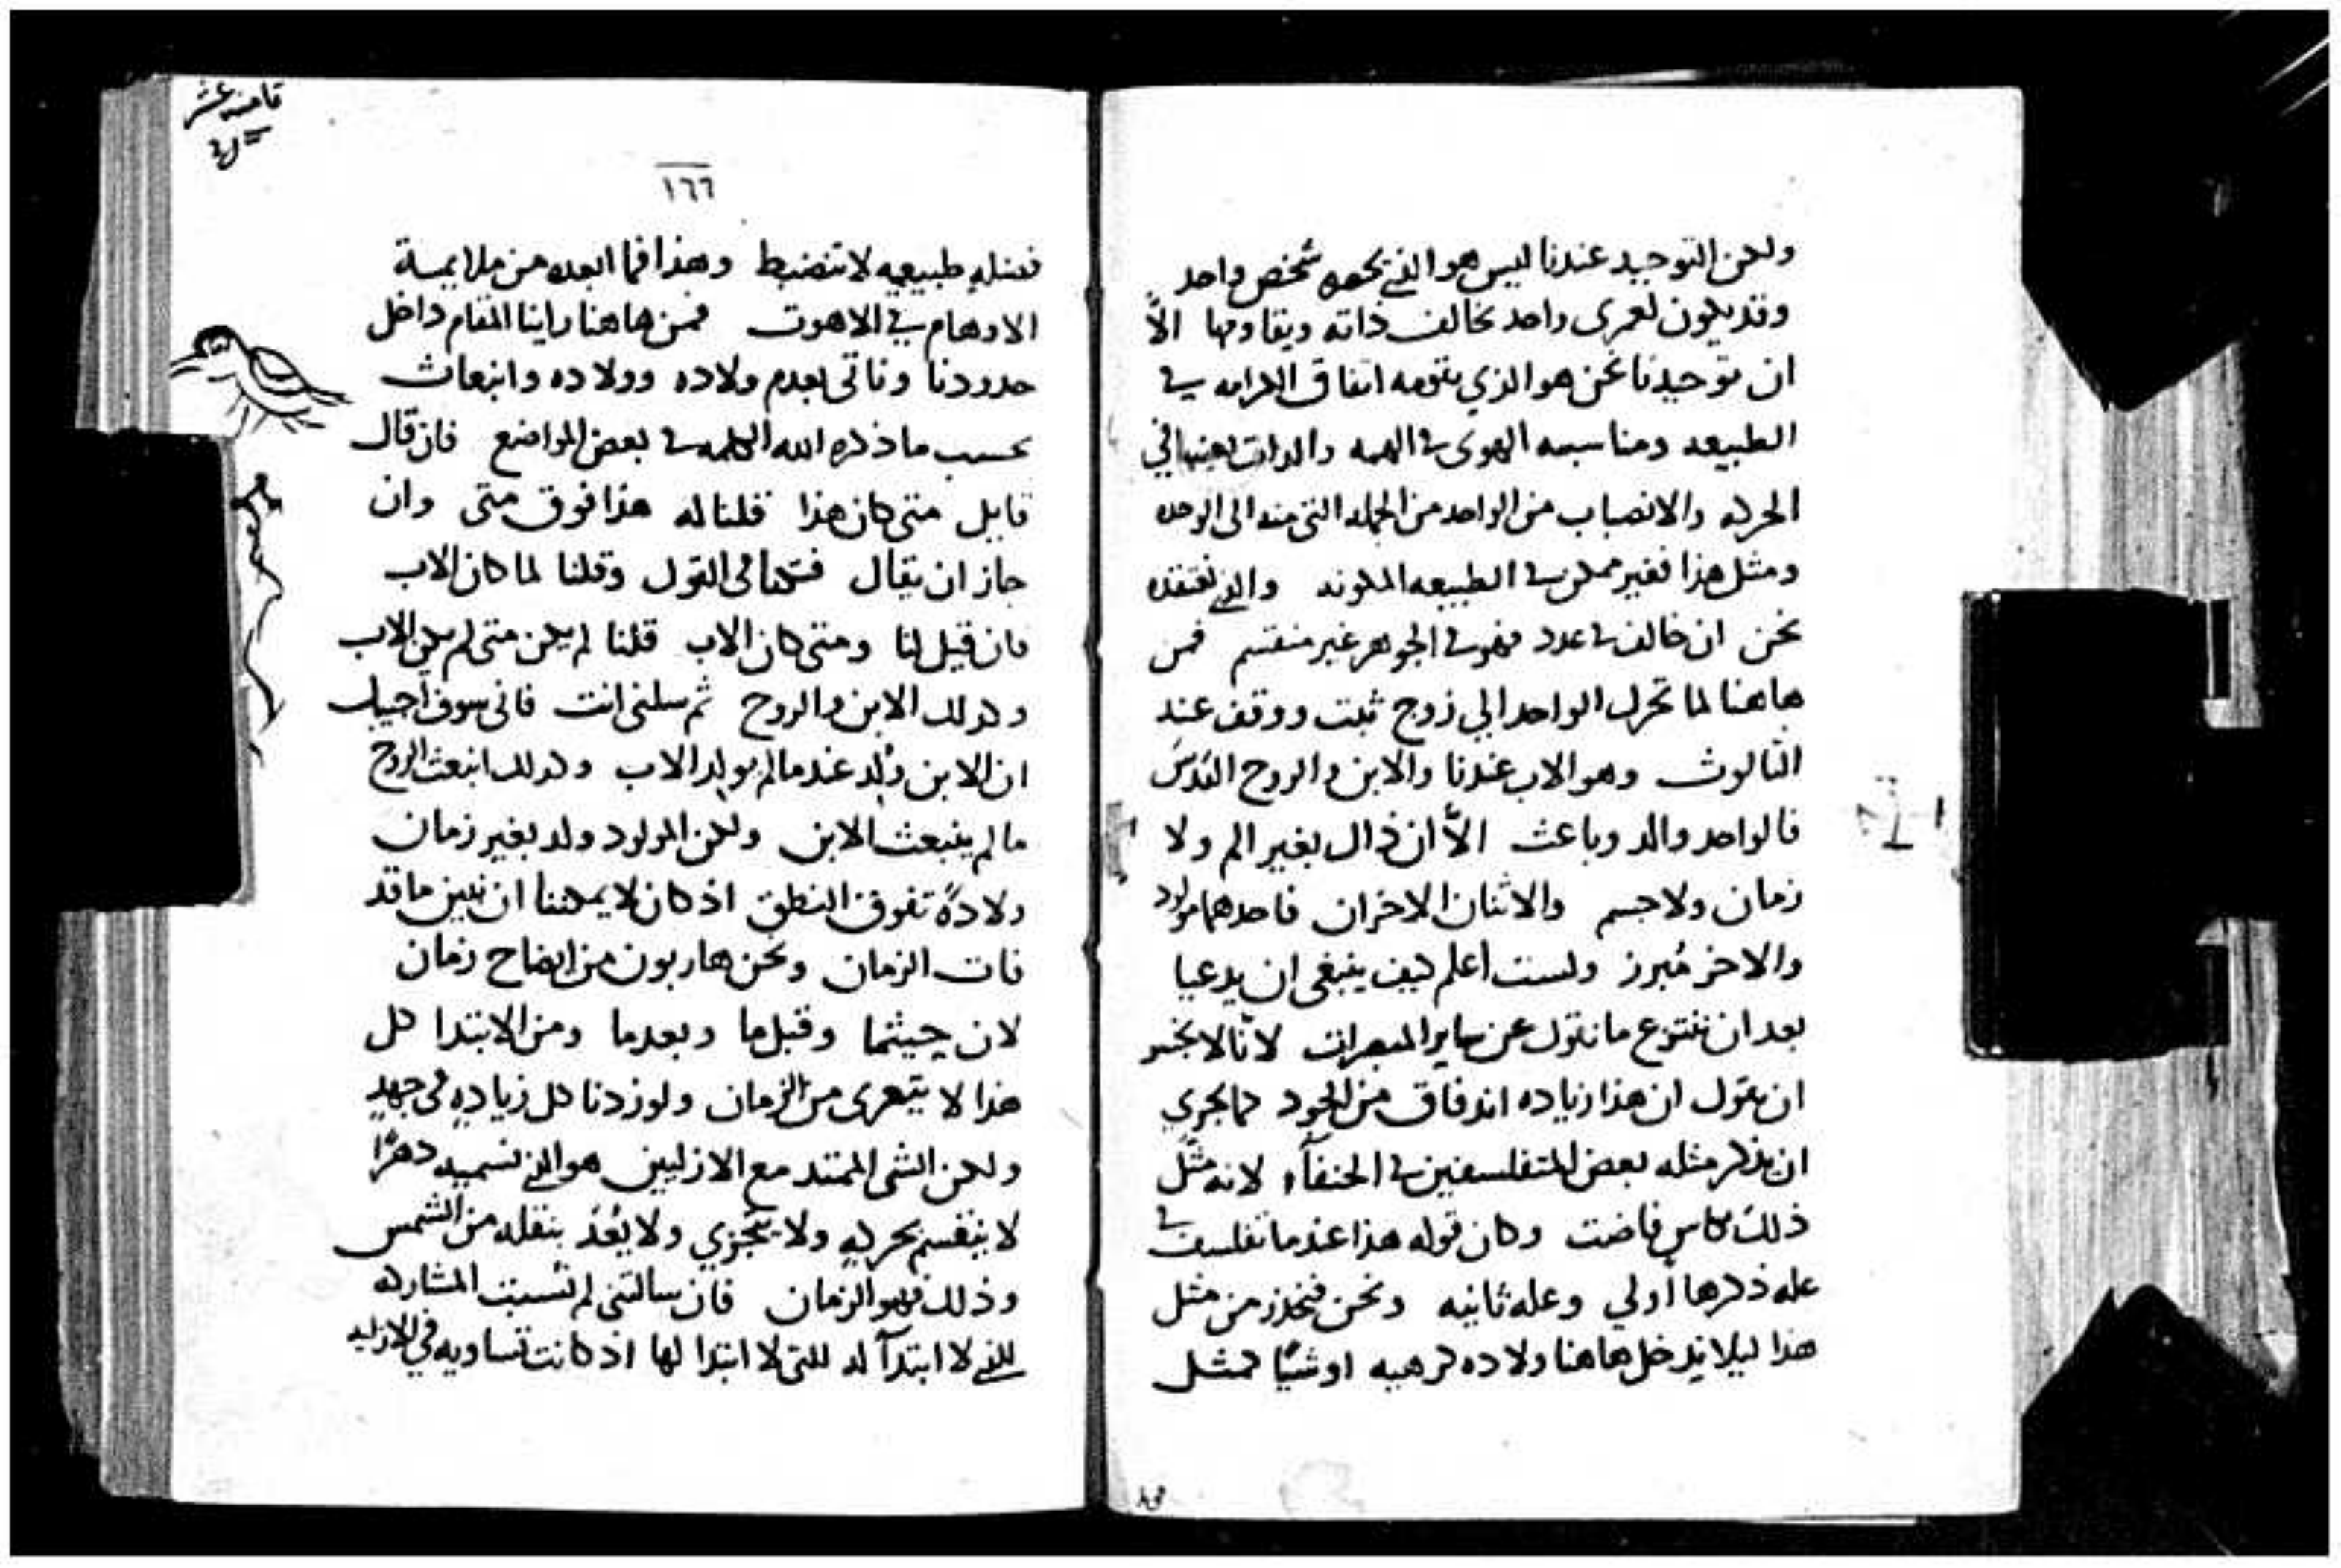 ولكن التوحيد عندنا ليس هو الذي يحصره شخص واحد
وقد يكون لعمري واحد يخالف ذاته ويقاومها الاّ
ان توحيدنا نحن هو الذي يقومه اتفاق الكرامه في
الطبيعه ومناسبه الهوى في الهمه والدات بعينها في
الحركه والانصباب من الواحد من الجمله التي منه الى الوحده
ومثل هذا فغير ممكن في الطبيعه المكونه والذي نعتقده
نحن ان خالف في عدد فهو في الجوهر غير منقسم فمن
هاهنا لما تحرك الواحد الي زوج ثبت ووقف عند
الثالوث وهو الاب عندنا والابن والروح القدس
فالواحد والد وباعث الاّ ان ذاك بغير الم ولا
زمان ولا جسم والاثنان الاخران فاحدهما مولود
والاخر مُبرز ولست اعلم كيف ينبغي ان يدعيا
بعد ان ننتزع ما نقول عن ساير المبصرات لانّا لا نجسر
ان نقول ان هذا زياده اندفاق من الجود كما يجري
ان يذكر مثله بعض المتفلسفين في الحنفآء لانه مثّل
ذلك بكاس فاضت وكان قوله هذا عندما تفلسف في
عله ذكرها اولي وعله ثانيه ونحن فنحذر من مثل
هذا ليلا يدخل هاهنا ولاده كرهيه او شيًا كمثل
قامسه عشر
١٦٦
فضله طبيعيه لا تنضبط وهذا فما ابعده من ملايمة
الاوهام في الاهوت فمن هاهنا راينا المقام داخل
حدودنا وناتى بعدم ولاده وولاده وانبعاث
بحسب ما ذكره الله الكلمه في بعض المواضع فان قال
قايل متى كان هذا قلنا له هذا فوق متى وان
جاز ان يقال فتحنا في القول وقلنا لما كان الاب
فان قيل لنا ومتى كان الاب قلنا لم يكن متى لم يكن الاب
وكذلك الابن والروح ثم سلني انت فانى سوف اجيبك
ان الابن وُلد عندما لم يولد الاب وكذلك انبعث الروح
ما لم ينبعث الابن ولكن المولود ولد بغير زمان
ولادةً تفوق النطق اذ كان لا يمكننا ان نبين ما قد
فات الزمان ونحن هاربون من ايضاح زمان
لان حيثما وقبل ما وبعد ما ومن الابتدا كل
هذا لا يتعرى من الزمان ولو زدنا كل زياده في جهدٍ
ولكن الشى الممتد مع الازليين هو الذي نسميه دهرًا
لا ينقسم بحركهٍ ولا يتجزي ولا يُعَدّ بنقله من الشمس
وذلك فهو الزمان فان سالتني لم نسبت المشاركه
للذي لا ابتدآ له للتى لا ابتدا لها اذ كانت تساويه في الازليه